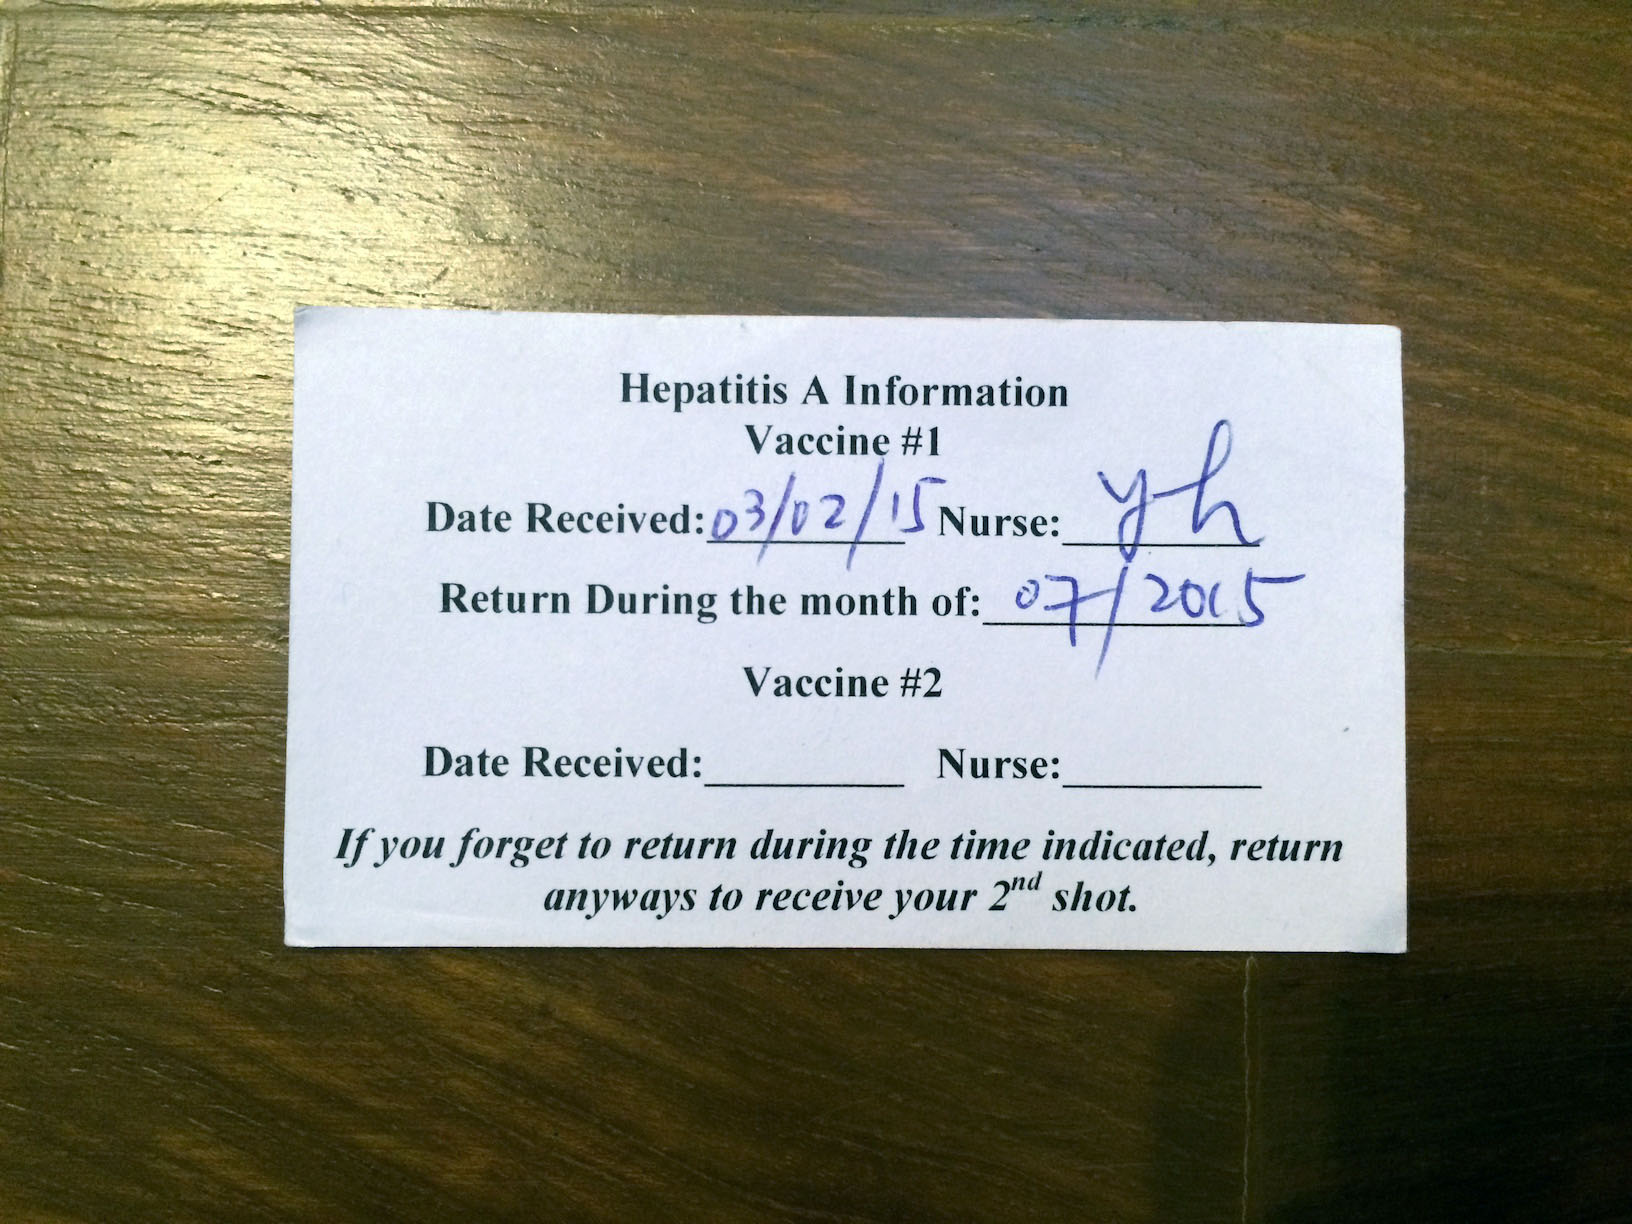 Hepatitis A Information
Vaccine #1
Date Received: 03/02/15 Nurse: yh
Return During the month of: 07/2015
Vaccine #2
Date Received:__________ Nurse:__________
If you forget to return during the time indicated, return
anyways to receive your 2nd shot.